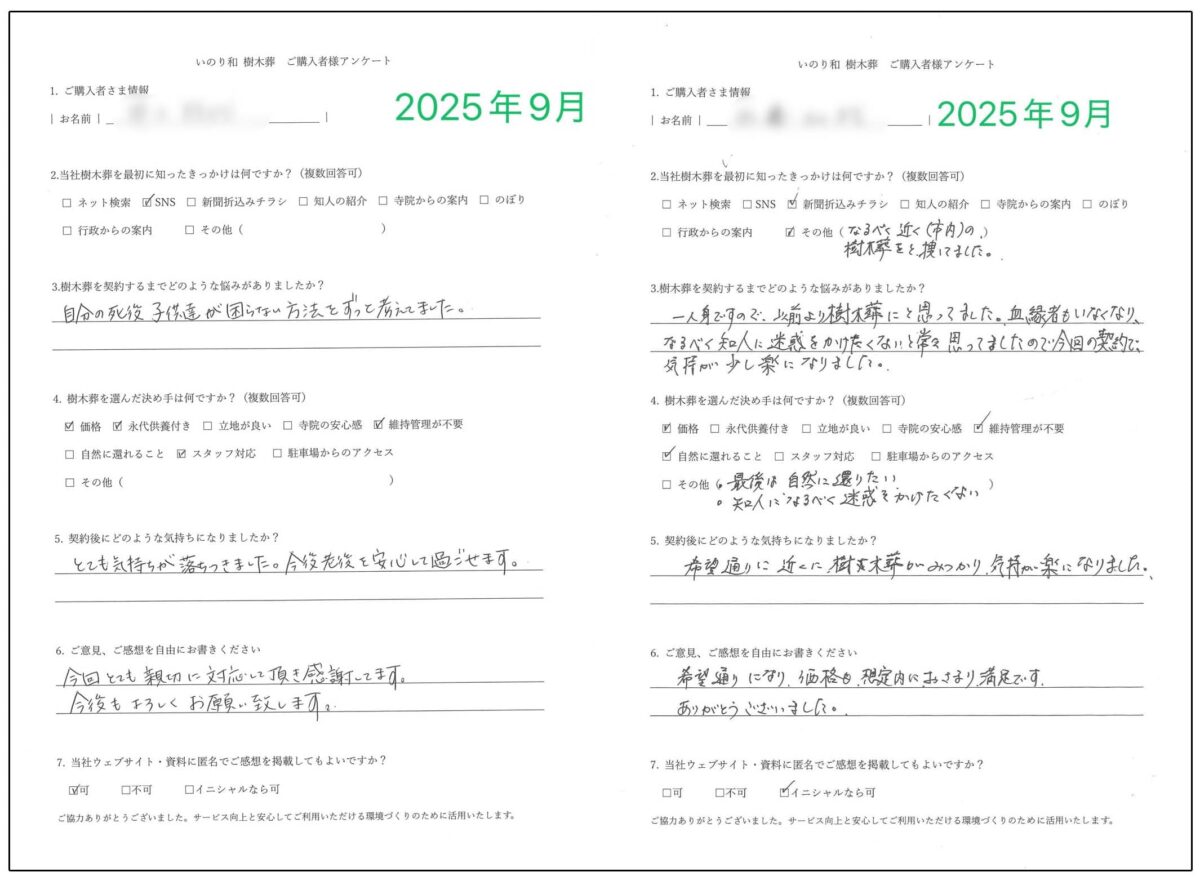 いのり和 樹木葬 ご購入者様アンケート
2025年9月
1. ご購入者さま情報
| お名前 | |
2.当社樹木葬を最初に知ったきっかけは何ですか？（複数回答可）
☐ ネット検索 ☑ SNS ☐ 新聞折込みチラシ ☐ 知人の紹介 ☐ 寺院からの案内 ☐ のぼり
☐ 行政からの案内 ☐ その他（ ）
3.樹木葬を契約するまでどのような悩みがありましたか？
自分の死後子供達が困らない方法をずっと考えてました。
4. 樹木葬を選んだ決め手は何ですか？（複数回答可）
☑ 価格 ☑ 永代供養付き ☐ 立地が良い ☐ 寺院の安心感 ☑ 維持管理が不要
☐ 自然に還れること ☑ スタッフ対応 ☐ 駐車場からのアクセス
☐ その他（ ）
5. 契約後にどのような気持ちになりましたか？
とても気持ちが落ちつきました。今後老後を安心して過ごせます。
6. ご意見、ご感想を自由にお書きください
今回とても親切に対応して頂き感謝してます。
今後もよろしくお願い致します。
7. 当社ウェブサイト・資料に匿名でご感想を掲載してもよいですか？
☑可 ☐不可 ☐イニシャルなら可
ご協力ありがとうございました。サービス向上と安心してご利用いただける環境づくりのために活用いたします。
いのり和 樹木葬 ご購入者様アンケート
2025年9月
1. ご購入者さま情報
| お名前 | |
2.当社樹木葬を最初に知ったきっかけは何ですか？（複数回答可）
☐ ネット検索 ☐ SNS ☑ 新聞折込みチラシ ☐ 知人の紹介 ☐ 寺院からの案内 ☐ のぼり
☐ 行政からの案内 ☑ その他（なるべく近く（市内）の、）
樹木葬をと、捜してました。
3.樹木葬を契約するまでどのような悩みがありましたか？
一人身ですので、以前より樹木葬にと思ってました。血縁者もいなくなり、
なるべく知人に迷惑をかけたくないと常々思ってましたので今回の契約で、
気持が少し楽になりました。
4. 樹木葬を選んだ決め手は何ですか？（複数回答可）
☑ 価格 ☐ 永代供養付き ☐ 立地が良い ☐ 寺院の安心感 ☑ 維持管理が不要
☑ 自然に還れること ☐ スタッフ対応 ☐ 駐車場からのアクセス
☐ その他（。最後は自然に還りたい ）
。知人になるべく迷惑をかけたくない
5. 契約後にどのような気持ちになりましたか？
希望通りに近くに、樹木葬がみつかり、気持が楽になりました。
6. ご意見、ご感想を自由にお書きください
希望通りになり、価格も、想定内におさまり、満足です。
ありがとうございました。
7. 当社ウェブサイト・資料に匿名でご感想を掲載してもよいですか？
☐可 ☐不可 ☑イニシャルなら可
ご協力ありがとうございました。サービス向上と安心してご利用いただける環境づくりのために活用いたします。